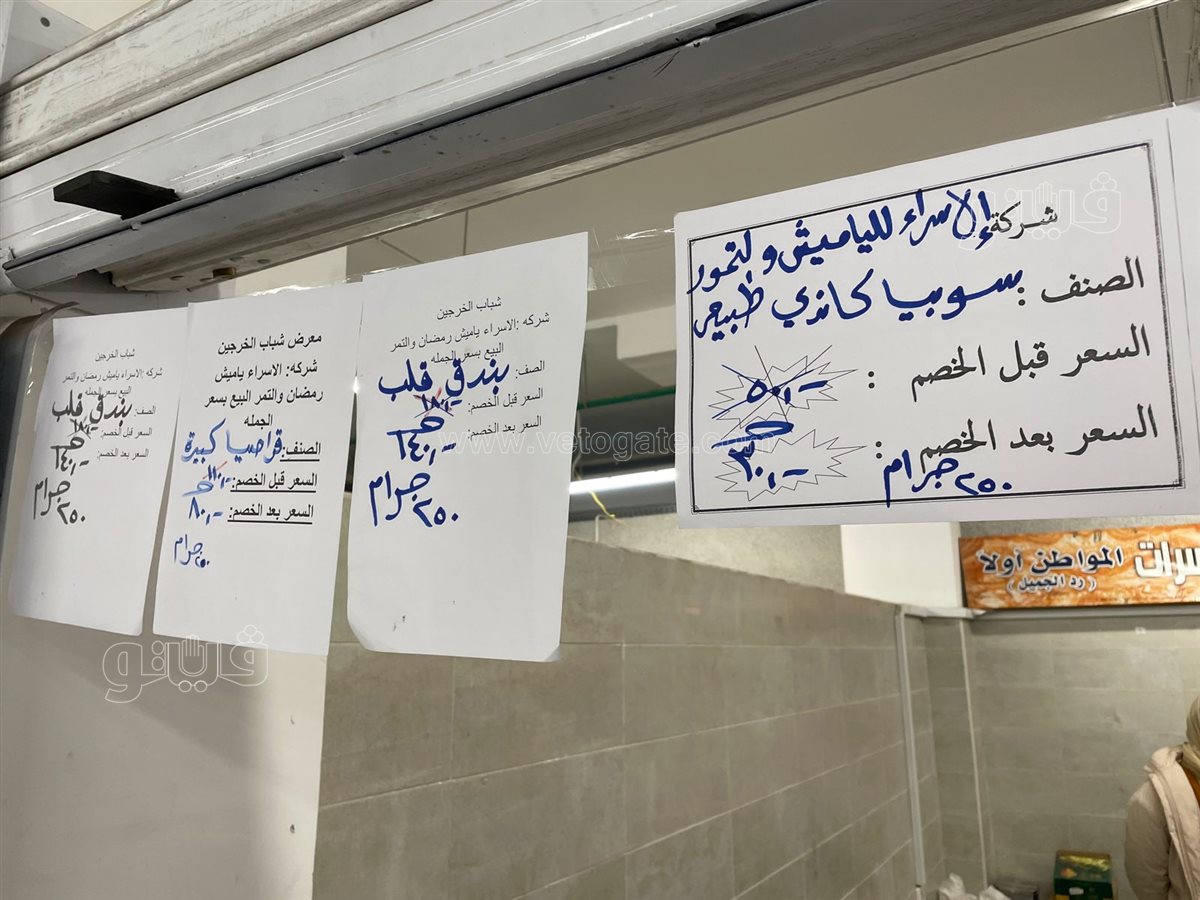 شركة الإسراء للياميش والتمور
الصنف : سوبيا كاندي طبيعي
السعر قبل الخصم : ٥٠,-
السعر بعد الخصم : ٣٠,-
٢٥٠ جرام
شباب الخرجين
شركه :الاسراء ياميش رمضان والتمر
البيع بسعر الجمله
الصف: بندق قلب
السعر قبل الخصم: ١٨٠,-
السعر بعد الخصم: ١٤٠,-
٢٥٠ جرام
معرض شباب الخرجين
شركه: الاسراء ياميش
رمضان والتمر البيع بسعر
الجمله
الصنف: قراصيا كبيرة
السعر قبل الخصم: ١١٠,-
السعر بعد الخصم: ٨٠,-
٢٥٠ جرام
شباب الخرجين
شركه :الاسراء ياميش رمضان والتمر
البيع بسعر الجمله
الصف: بندق قلب
السعر قبل الخصم: ١٨٠,-
السعر بعد الخصم: ١٤٠,-
٢٥٠ جرام
المواطن أولا
( رد الجميل )
www.vetogate.com
ڤيتو
ڤيتو